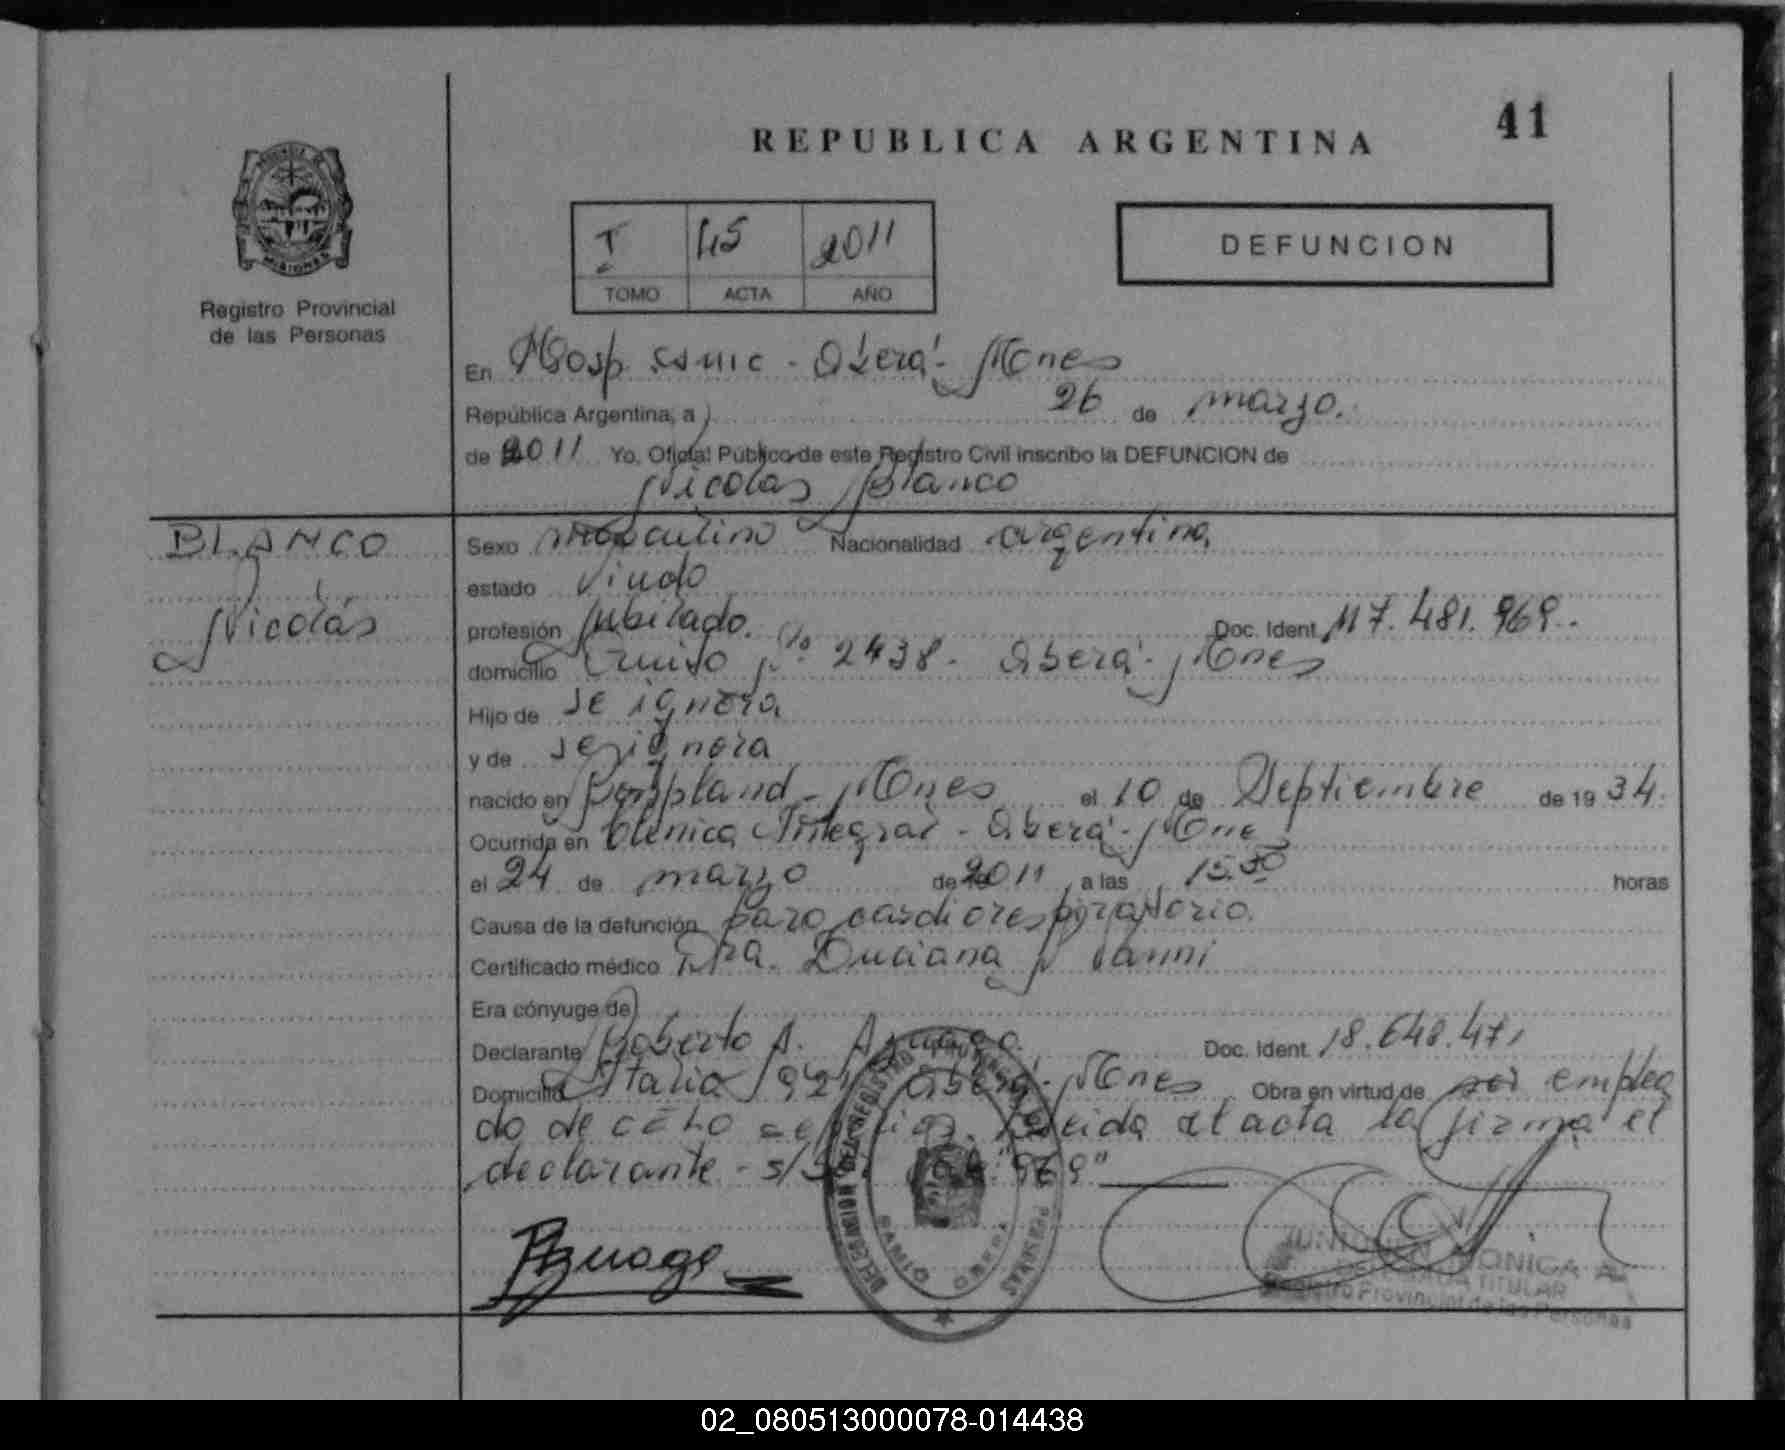 41
REPUBLICA ARGENTINA
I 45 2011
TOMO ACTA AÑO
DEFUNCION
MISIONES
Registro Provincial
de las Personas
En Hosp. Samic - Oberá - Mnes
República Argentina, a 26 de marzo.
de 2011 Yo, Oficial Público de este Registro Civil inscribo la DEFUNCION de
Nicolás Blanco
BLANCO
Nicolás
Sexo masculino Nacionalidad argentina,
estado Viudo
profesión Jubilado. Doc. Ident. M7.481.969.
domicilio Nº 2438 - Oberá - Mnes
Hijo de se ignora
y de se ignora
nacido en Bonpland - Mnes el 10 de Septiembre de 1934.
Ocurrida en Clínica Integral - Oberá - Mne
el 24 de marzo de 2011 a las 15.30 horas
Causa de la defunción paro cardiorespiratorio.
Certificado médico Dra. Luciana Vanni
Era cónyuge de
Declarante Roberto A. Doc. Ident. 18.648.471
Domicilio Italia 921 Oberá - Mnes Obra en virtud de ser emplea
do de Leída el acta la firma el
declarante - s/ "969"
DELEGACION DEL REGISTRO PROVINCIAL DE LAS PERSONAS
RAMIO
MONICA
DELEGADA TITULAR
Registro Provincial de las Personas
02_080513000078-014438